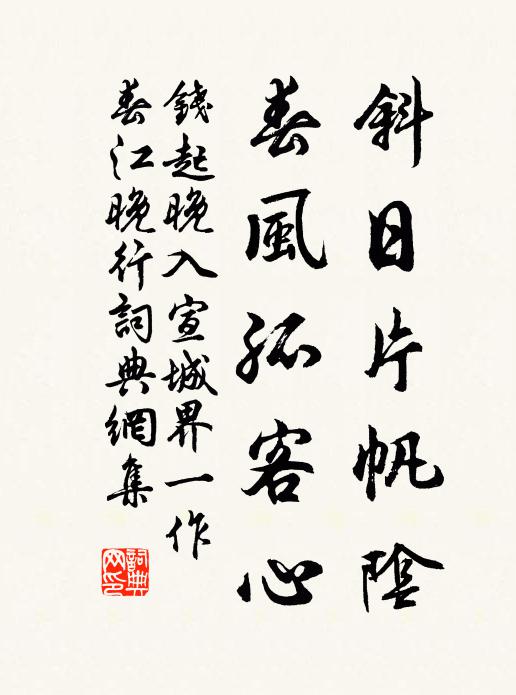 斜日片帆陰
春風孤客心
錢起晚入宣城界一作
春江晚行詞典網集
詞典
网印